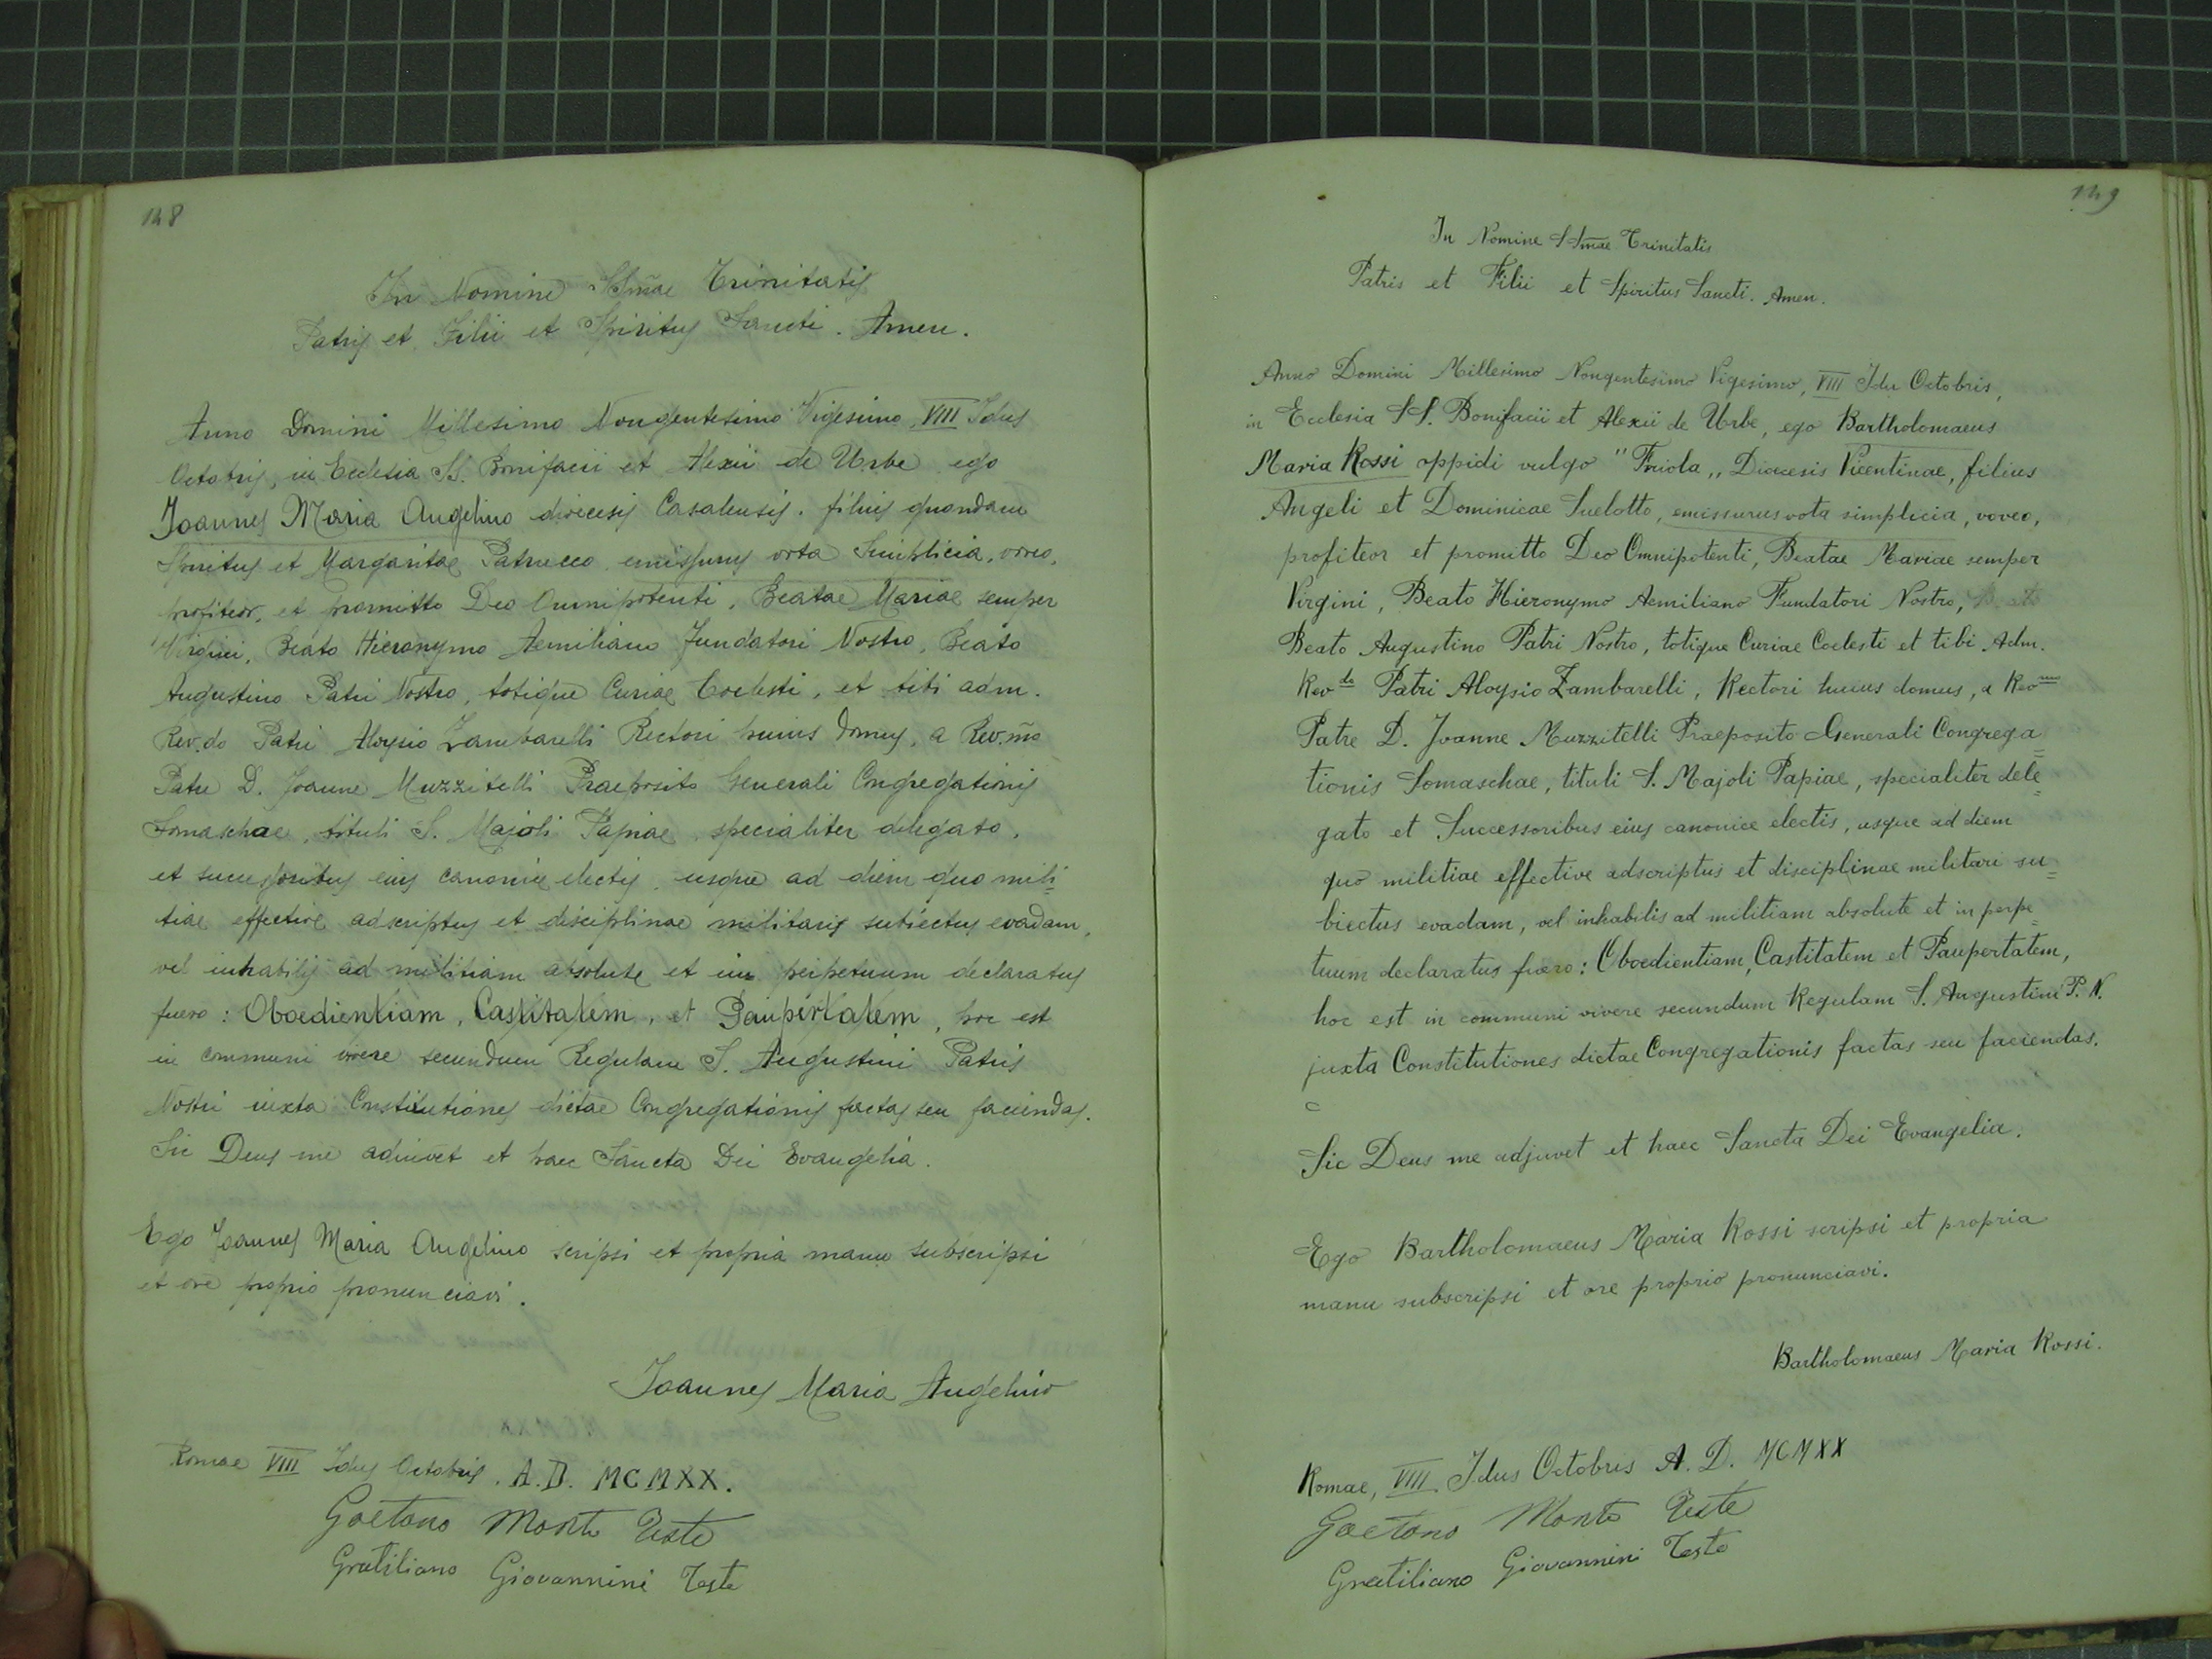 148
In Nomine SSm̃ae Trinitatis
Patris et Filii et Spiritus Sancti. Amen.
Anno Domini Millesimo Nongentesimo Vigesimo, VIII Idus
Octobris, in Ecclesia SS. Bonifacii et Alexii de Urbe ego
Joannes Maria Angelino dioecesis Casalensis. filius quondam
Spiritus et Margaritae Patrucco emissurus vota Simplicia, voveo,
profiteor, et promitto Deo Omnipotenti, Beatae Mariae semper
Virgini, Beato Hieronymo Aemiliano Fundatori Nostro, Beato
Augustino Patri Nostro, totique Curiae Coelesti, et tibi adm.
Rev.do Patri Aloysio Zambarelli Rectori huius domus, a Rev.m̃o
Patre D. Joanne Muzzitelli Praeposito Generali Congregationis
Somaschae, tituli S. Majoli Papiae, specialiter delegato,
et successoribus eius canonice electis, usque ad diem quo mili=
tiae effective adscriptus et disciplinae militaris subiectus evadam,
vel inhabilis ad militiam absolute et in perpetuum declaratus
fuero: Oboedientiam, Castitatem, et Paupertatem, hoc est
in communi vivere secundum Regulam S. Augustini Patris
Nostri iuxta Constitutiones dictae Congregationis factas seu faciendas.
Sic Deus me adiuvet et haec Sancta Dei Evangelia.
Ego Joannes Maria Angelino scripsi et propria manu subscripsi
et ore proprio pronunciavi.
Joannes Maria Angelino
Romae VIII Idus Octobris. A.D. MCMXX.
Gaetano Monto Teste
Gratiliano Giovannini Teste
149
In Nomine SSmae Trinitatis
Patris et Filii et Spiritus Sancti. Amen.
Anno Domini Millesimo Nongentesimo Vigesimo, VIII Idu Octobris,
in Ecclesia SS. Bonifacii et Alexii de Urbe, ego Bartholomaeus
Maria Rossi oppidi vulgo "Friola„ Dioecesis Vicentinae, filius
Angeli et Dominicae Suelotto, emissurus vota simplicia, voveo,
profiteor et promitto Deo Omnipotenti, Beatae Mariae semper
Virgini, Beato Hieronymo Aemiliano Fundatori Nostro,
Beato Augustino Patri Nostro, totique Curiae Coelesti et tibi Adm.
Rev do Patri Aloysio Zambarelli, Rectori huius domus, a Rev mo
Patre D. Joanne Muzzitelli Praeposito Generali Congrega=
tionis Somaschae, tituli S. Majoli Papiae, specialiter dele=
gato et Successoribus eius canonice electis, usque ad diem
quo militiae effective adscriptus et disciplinae militari su=
biectus evadam, vel inhabilis ad militiam absolute et in perpe=
tuum declaratus fuero: Oboedientiam, Castitatem et Paupertatem,
hoc est in communi vivere secundum Regulam S. Augustini P. N.
juxta Constitutiones dictae Congregationis factas seu faciendas.
Sic Deus me adjuvet et haec Sancta Dei Evangelia.
Ego Bartholomaeus Maria Rossi scripsi et propria
manu subscripsi et ore proprio pronunciavi.
Bartholomaeus Maria Rossi.
Romae, VIII. Idus Octobris A. D. MCMXX
Gaetano Monto Teste
Gratiliano Giovannini Teste